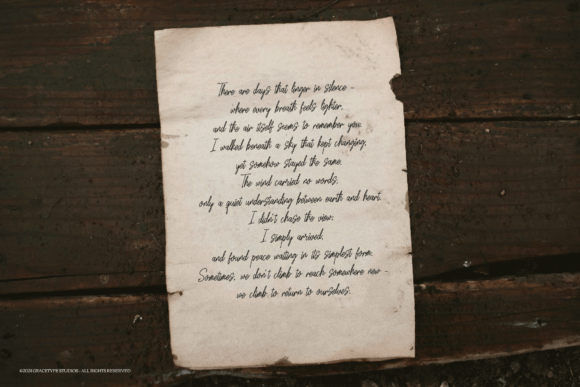 There are days that linger in silence -
where every breath feels lighter,
and the air itself seems to remember you.
I walked beneath a sky that kept changing,
yet somehow stayed the same.
The wind carried no words,
only a quiet understanding between earth and heart.
I didn't chase the view;
I simply arrived,
and found peace waiting in its simplest form.
Sometimes, we don't climb to reach somewhere new -
we climb to return to ourselves.
©2025 GRACETYPE STUDIOS - ALL RIGHTS RESERVED